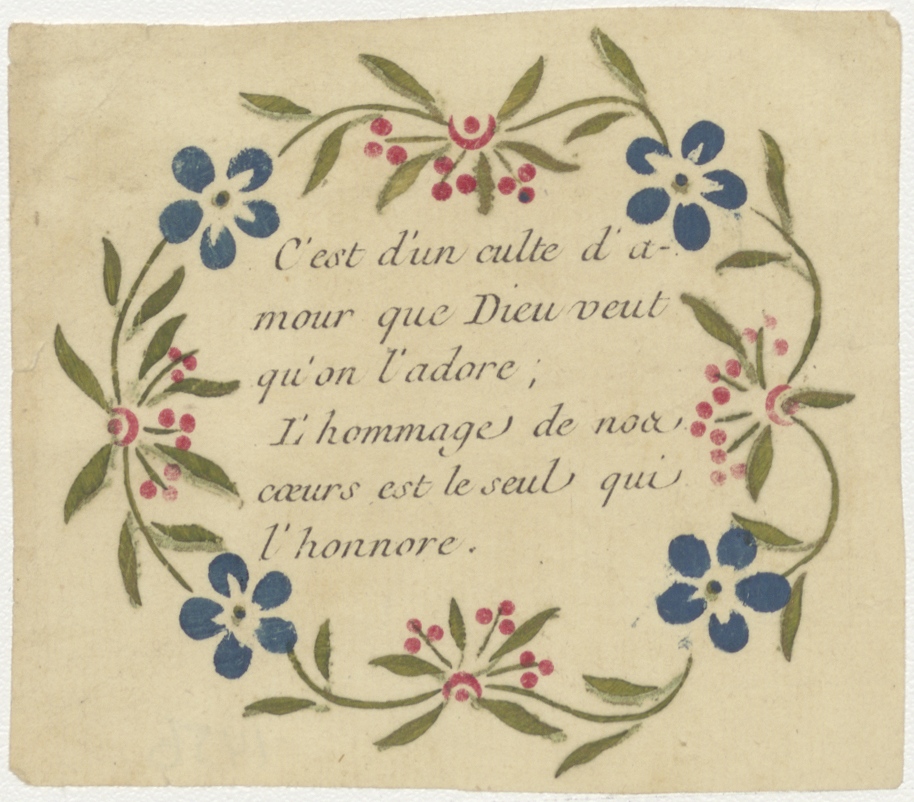 C'est d'un culte d'a-
mour que Dieu veut
qu'on l'adore ;
L'hommage de nos
cœurs est le seul qui
l'honnore.